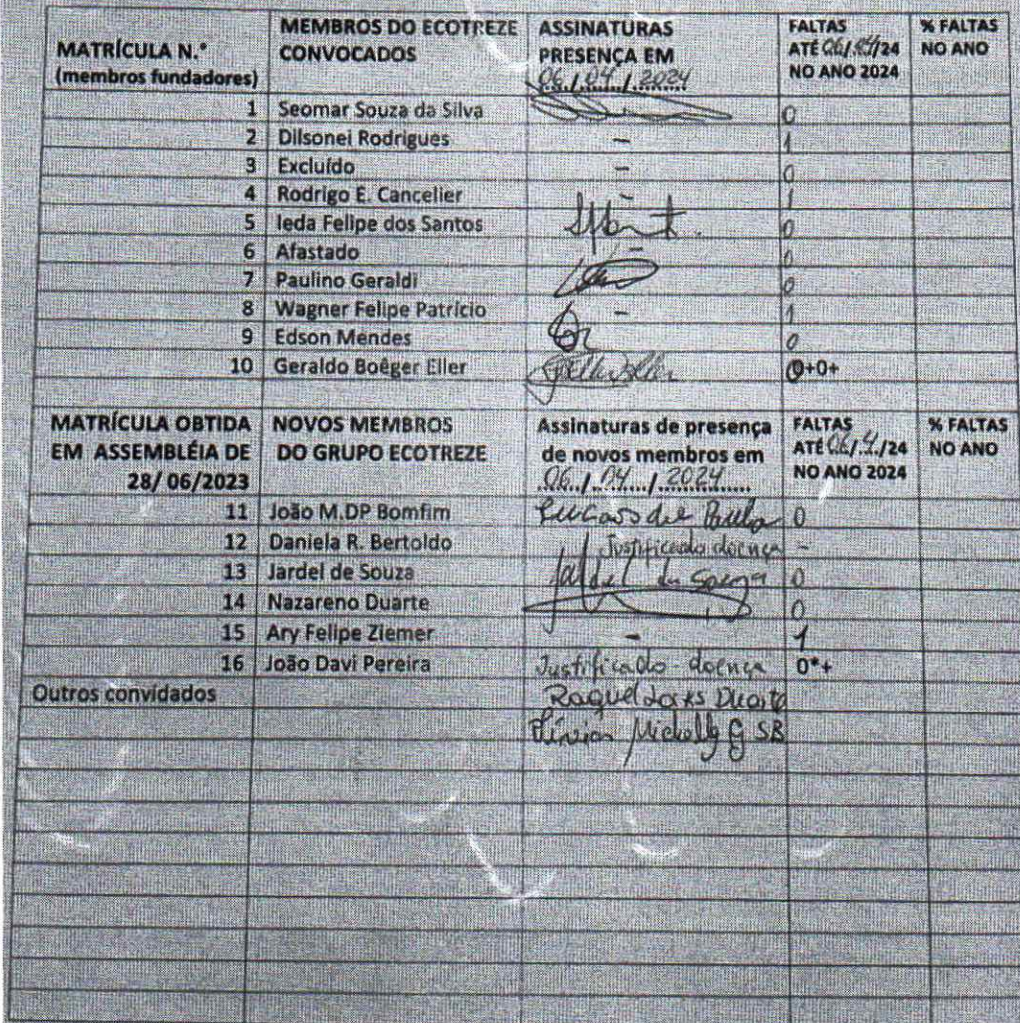 MATRÍCULA N.º
(membros fundadores)
MEMBROS DO ECOTREZE
CONVOCADOS
ASSINATURAS
PRESENÇA EM
06/04/2024
FALTAS
ATÉ 06/04/24
NO ANO 2024
% FALTAS
NO ANO
1 Seomar Souza da Silva 0
2 Dilsonei Rodrigues - 1
3 Excluído - 0
4 Rodrigo E. Cancelier - 1
5 Ieda Felipe dos Santos 0
6 Afastado - 0
7 Paulino Geraldi 0
8 Wagner Felipe Patrício - 1
9 Edson Mendes 0
10 Geraldo Boêger Eller 0+0+
MATRÍCULA OBTIDA
EM ASSEMBLÉIA DE
28/ 06/2023
NOVOS MEMBROS
DO GRUPO ECOTREZE
Assinaturas de presença
de novos membros em
06/04/2024
FALTAS
ATÉ 06/4/24
NO ANO 2024
% FALTAS
NO ANO
11 João M.DP Bomfim 0
12 Daniela R. Bertoldo Justificado doença -
13 Jardel de Souza Jardel de Souza 0
14 Nazareno Duarte 0
15 Ary Felipe Ziemer - 1
16 João Davi Pereira Justificado - doença 0*+
Outros convidados Raquel Duarte